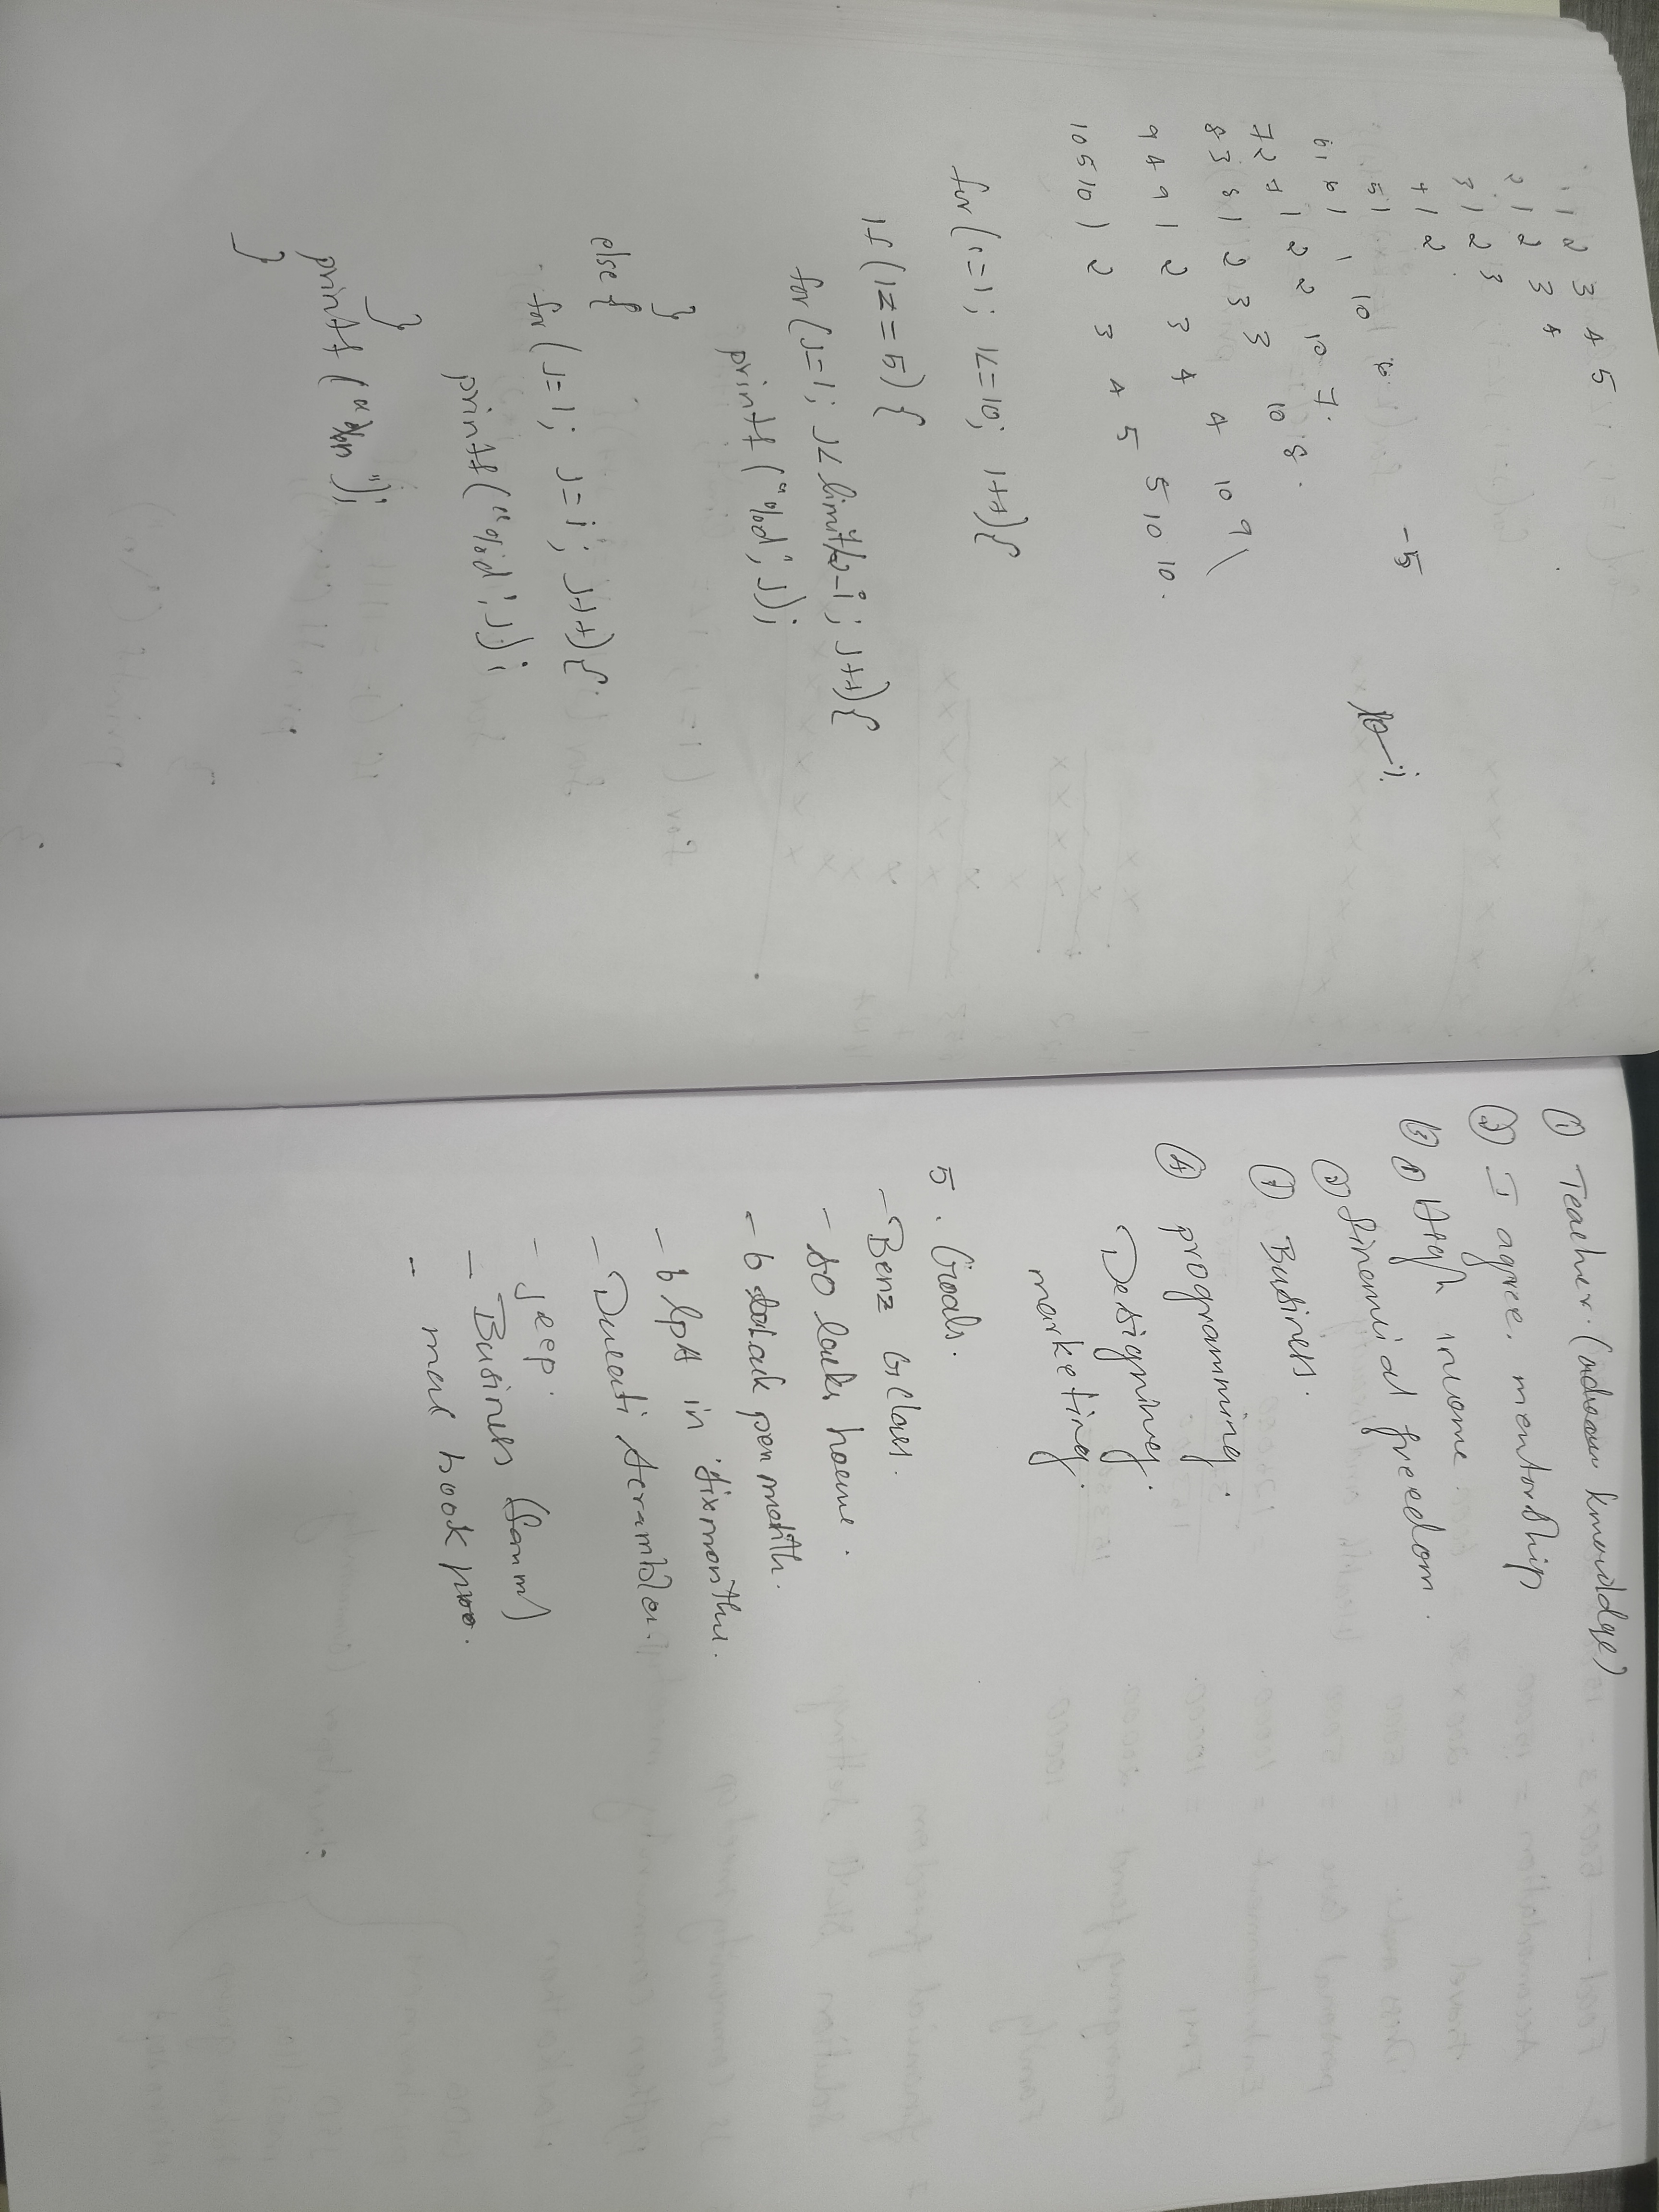 1 1 2 3 4 5
2 1 2 3 4
3 1 2 3
4 1 2
5 1
6 1 6 1 1 10 6
7 2 7 1 2 2 10 7.
8 3 8 1 2 3 3 10 8.
9 4 9 1 2 3 4 4 10 9
10 5 10 1 2 3 4 5 5 10 10.
-5
for (i=1; i<=10; i++){
if (i<=5){
for (j=1; j<limit/2-i; j++){
printf("%d", j);
}
else {
for (j=1; j=i; j++){
printf("%d", j);
}
printf("\n");
}
}
① Teacher. ( knowldge)
② I agree. mentorship
③ ① High income
② finencial freedom.
④ Business.
④ programming.
Designing.
marketing.
5. Goals.
- Benz G class.
- 50 laks house.
- 6 lak per month.
- 6 lpA in six months.
- Ducati scrambler.
- jeep.
- Business (farm)
- mac book pro.